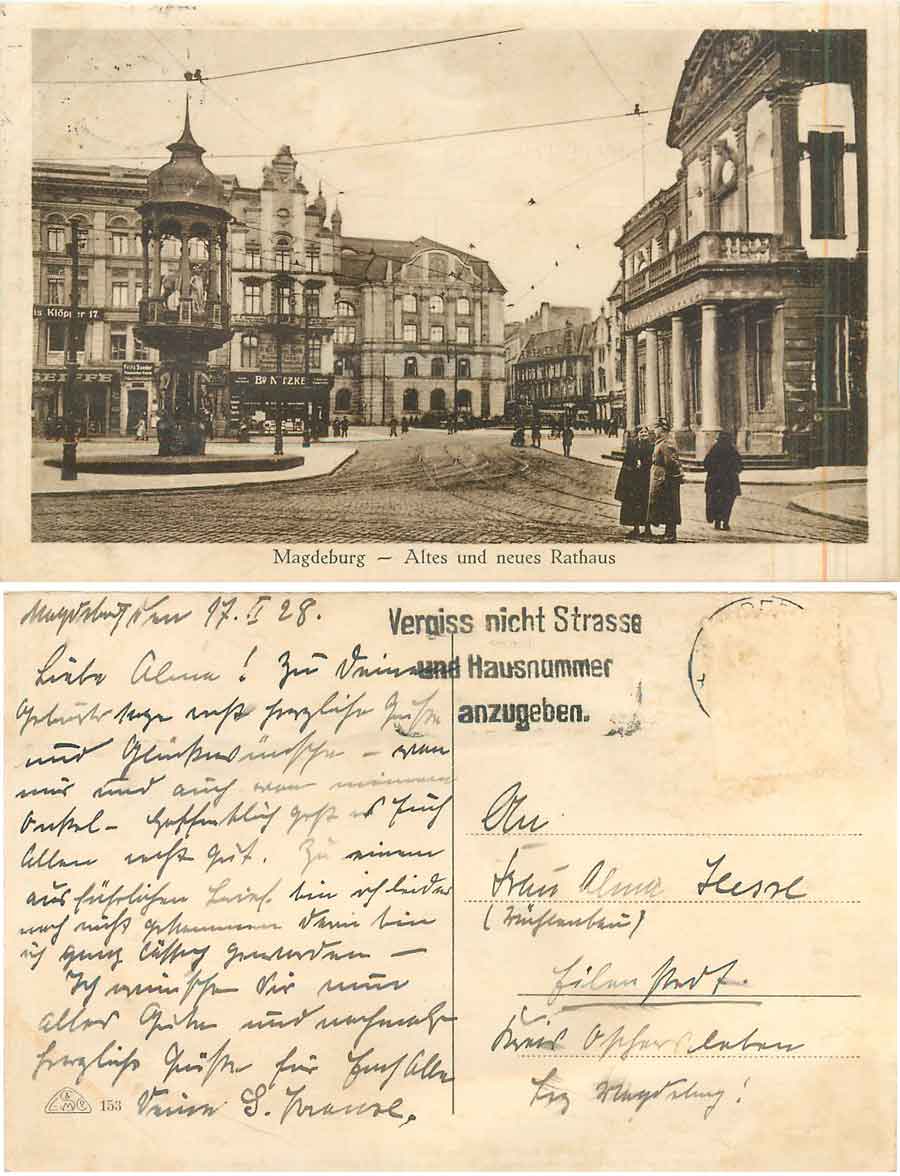 is Klöpper 17.
SEIFFE
Magdeburg – Altes und neues Rathaus
Magdeburg den 17. II 28.
Vergiss nicht Strasse
und Hausnummer
anzugeben.
Liebe Alma! Zu Deinem
Geburtstage recht herzliche Grüße
und Glückwünsche – von
mir und auch von meinem
Onkel – Hoffentlich geht es Euch
Allen recht gut. Zu einem
ausführlichen Brief bin ich leider
noch nicht gekommen denn bin
ich ganz lässig geworden –
Ich wünsche Dir nun
alles Gute und nochmals
herzliche Grüße für Euch Alle
Deine G. Krause.
An
Frau Alma
(Mühlenbau)
Eilenstedt
Kreis Oschersleben
Bez Magdeburg!
153